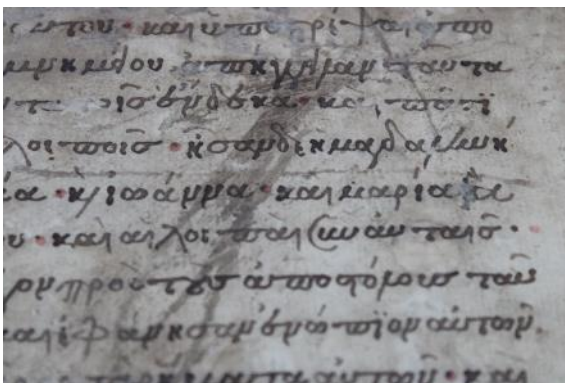 καὶ ὑπο ἀπὸ
μνημείου ἀπήγγειλαν ταῦτα
τοῖς ἕνδεκα καὶ πᾶσι
λοιποῖς · ἦσαν δὲ ἡ μαγδαληνὴ
· καὶ ἰωάννα · καὶ μαρία
· καὶ αἱ λοιπαὶ σὺν αὐταῖς ·
πρὸς τοὺς ἀποστόλους ταῦ
καὶ ἐφάνησαν ἐνώπιον αὐτῶν
αὐτῶν · καὶ